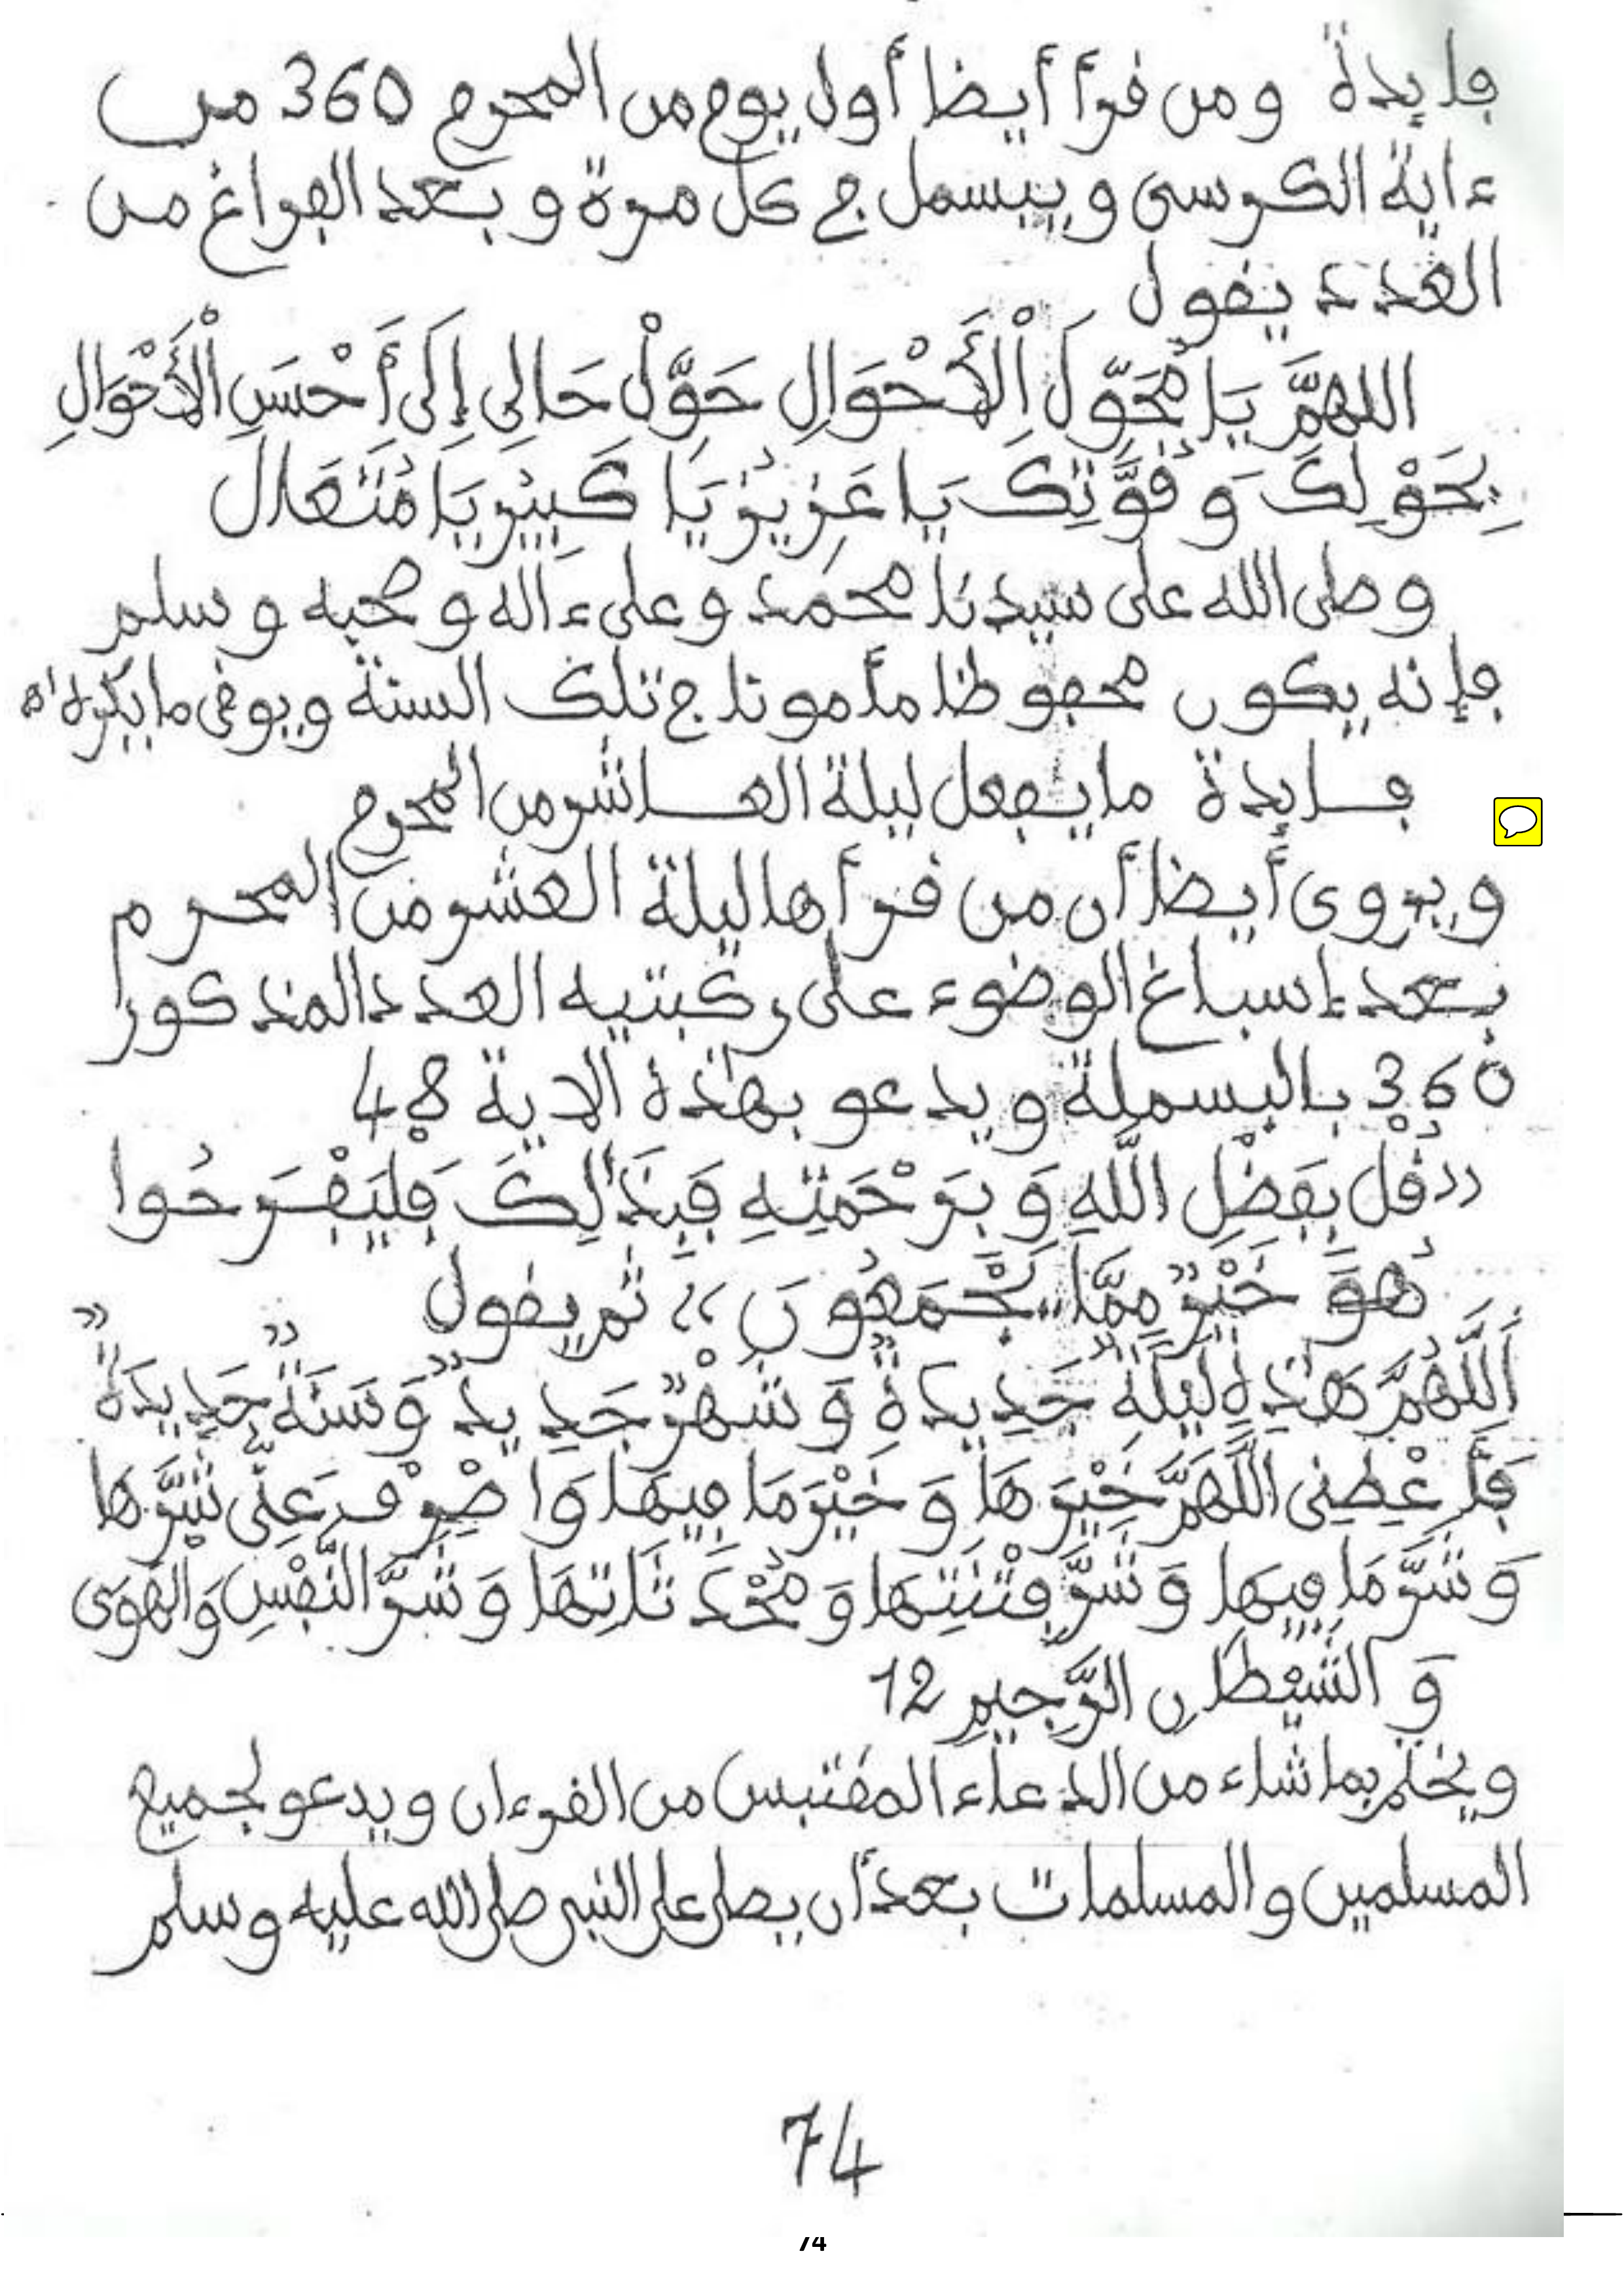 فايدة ومن قرأ أيضا أول يوم من المحرم 360 من
ءاية الكرسي ويبسمل في كل مرة وبعد الفراغ من
العدد يقول
اللهمَّ يَا مُحَوِّلَ اْلأَحْوَالِ حَوِّلْ حَالِي إِلَى أَحْسَنِ اْلأَحْوَالِ
بِحَوْلِكَ وَقُوَّتِكَ يَا عَزِيزُ يَا كَبِيرُ يَا مُتَعَالَ
وصلى الله على سيدنا محمد وعلى ءاله وصحبه وسلم
فإنه يكون محفوظا مأمونا في تلك السنة ويوقى ما يكره اه
فــايدة ما يفعل ليلة العــاشر من المحرم
ويروى أيضا أن من قرأها ليلة العشر من المحرم
بعد إسباغ الوضوء على ركبتيه العدد المذكور
360 بالبسملة ويدعو بهذه الاية 48
«قُلْ بِفَضْلِ اللَّهِ وَبِرَحْمَتِهِ فَبِذَٰلِكَ فَلْيَفْرَحُوا
هُوَ خَيْرٌ مِمَّا يَجْمَعُونَ» ثم يقول
اَللَّهُمَّ هَٰذِهِ لَيْلَةٌ جَدِيدَةٌ وَشَهْرٌ جَدِيدٌ وَسَنَةٌ جَدِيدَةٌ
فَأَعْطِنِي اللَّهُمَّ خَيْرَهَا وَخَيْرَ مَا فِيهَا وَاصْرِفْ عَنِّي شَرَّهَا
وَشَرَّ مَا فِيهَا وَشَرَّ فِتْنَتِهَا وَمُحْدَثَاتِهَا وَشَرَّ النَّفْسِ وَالْهَوَى
وَالشَّيْطَانِ الرَّجِيمِ 12
ويختم بما شاء من الدعاء المقتبس من القرءان ويدعو لجميع
المسلمين والمسلمات بعد أن يصلى على النبي صلى الله عليه وسلم
74
74